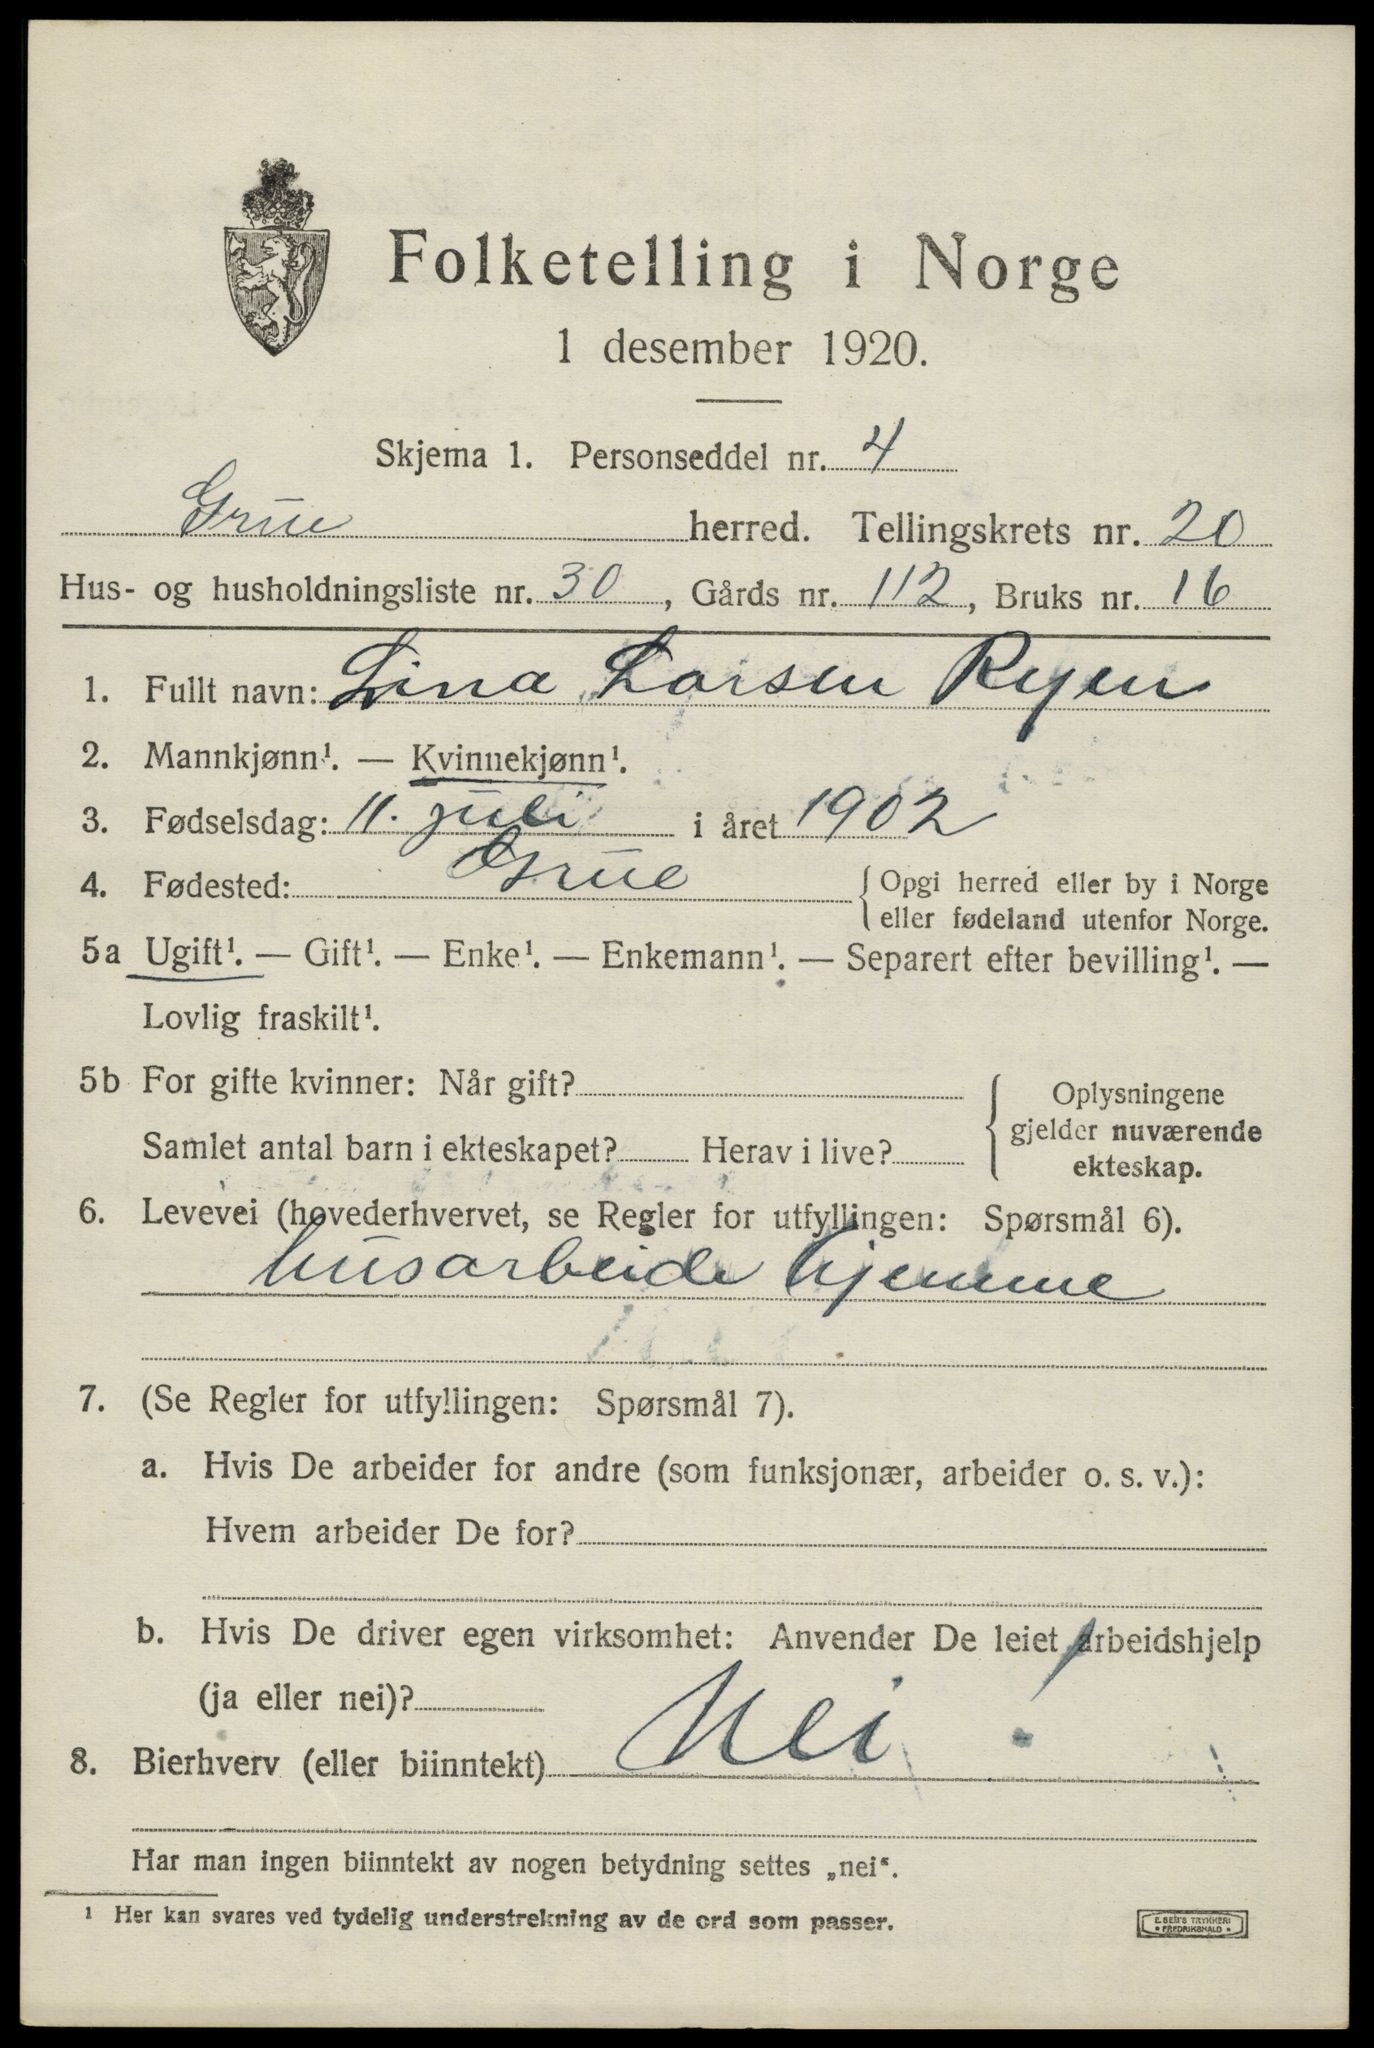 Folketelling i Norge
1 desember 1920.
Skjema 1. Personseddel nr. 4
Grue herred. Tellingskrets nr. 20
Hus- og husholdningsliste nr. 30, Gårds nr. 112, Bruks nr. 16
1. Fullt navn: Lina Larsen Ryen
2. Mannkjønn¹. — Kvinnekjønn¹.
3. Fødselsdag: 11. juli i året 1902
4. Fødested: Grue {Opgi herred eller by i Norge
eller fødeland utenfor Norge.
5a Ugift¹. — Gift¹. — Enke¹. — Enkemann¹. — Separert efter bevilling¹. —
Lovlig fraskilt¹.
5b For gifte kvinner: Når gift?
Samlet antal barn i ekteskapet? Herav i live?
{ Oplysningene
gjelder nuværende
ekteskap.
6. Levevei (hovederhvervet, se Regler for utfyllingen: Spørsmål 6).
husarbeide hjemme
7. (Se Regler for utfyllingen: Spørsmål 7).
a. Hvis De arbeider for andre (som funksjonær, arbeider o. s. v.):
Hvem arbeider De for?
b. Hvis De driver egen virksomhet: Anvender De leiet arbeidshjelp
(ja eller nei)?
8. Bierhverv (eller biinntekt) Nei!
Har man ingen biinntekt av nogen betydning settes „nei“.
¹ Her kan svares ved tydelig understrekning av de ord som passer.
E. SEM'S TRYKKERI
* FREDRIKSHALD *